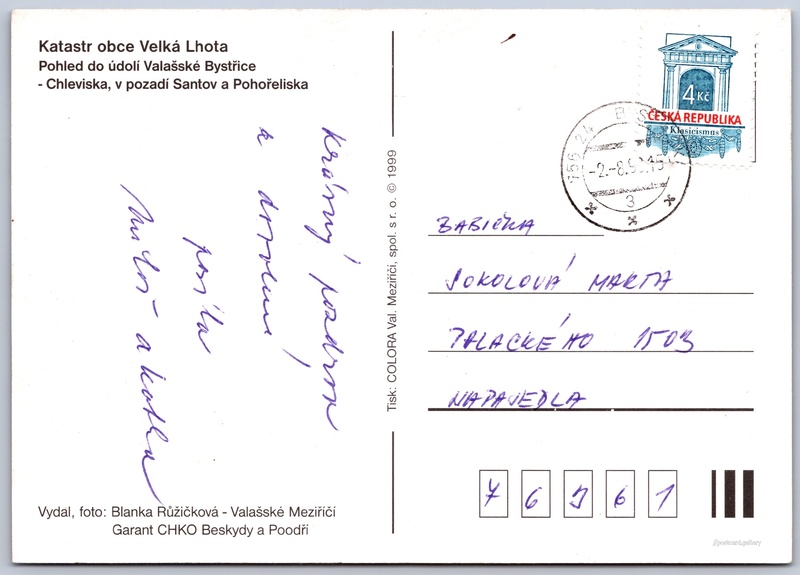 Katastr obce Velká Lhota
Pohled do údolí Valašské Bystřice
- Chleviska, v pozadí Santov a Pohořeliska
4 Kč
ČESKÁ REPUBLIKA
Klasicismus
756 24
-2.-8.99.15
3
Krásný pozdrav
z dovolené
posílá
Miloš a Katka
Tisk: COLORA Val. Meziříčí, spol. s r. o. © 1999
BABIČKA
SOKOLOVÁ MARTA
PALACKÉHO 1503
NAPAJEDLA
76361
Vydal, foto: Blanka Růžičková - Valašské Meziříčí
Garant CHKO Beskydy a Poodří
postcard.gallery